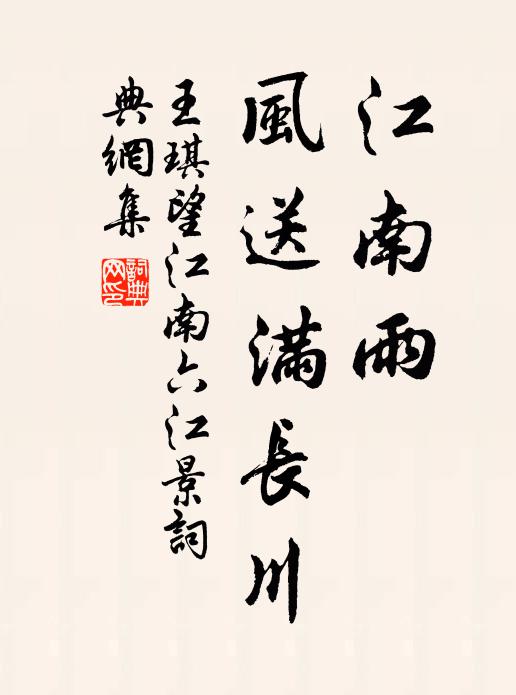 江南雨
風送滿長川
王琪望江南六江景詞
典網集
詞典网印